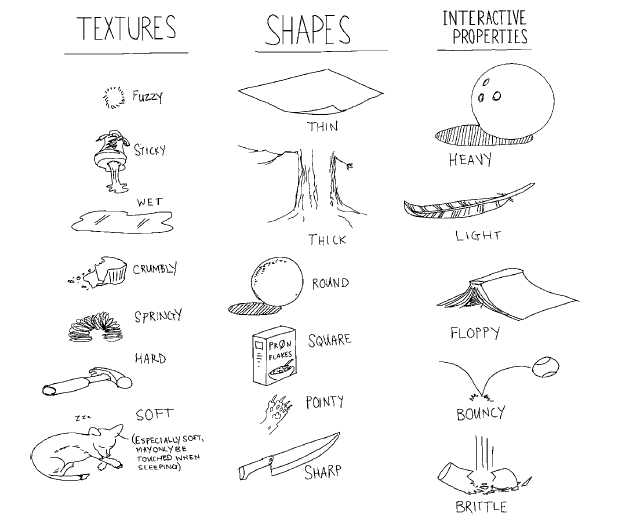 TEXTURES
FUZZY
STICKY
WET
CRUMBLY
SPRINGY
HARD
zzz
SOFT
(ESPECIALLY SOFT,
MAY ONLY BE
TOUCHED WHEN
SLEEPING)
SHAPES
THIN
THICK
ROUND
PRØN
FLAKES
SQUARE
POINTY
SHARP
INTERACTIVE
PROPERTIES
HEAVY
LIGHT
FLOPPY
BOUNCY
BRITTLE